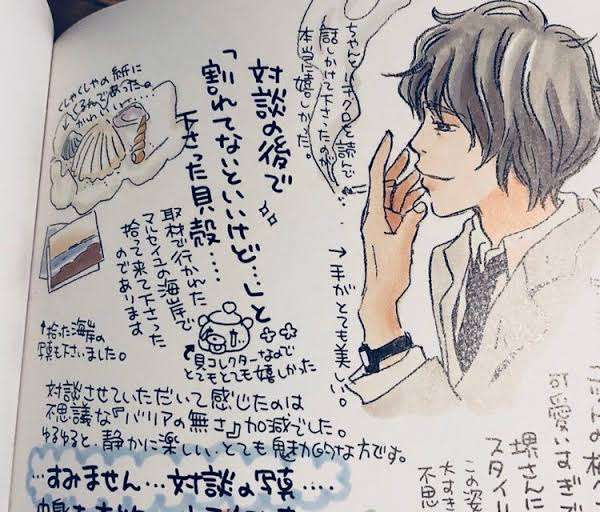 ちゃんとハチクロを読んで
話しかけて下さったのが
本当に嬉しかった。
→手がとても美しい。
対談の後で
「割れてないといいけど…」と
下さった貝殻….
くしゃくしゃの紙に
くるんであった。
かわいい…
取材で行かれた
マルセイユの海岸で
拾って来て下さった
のであります
↑拾った海岸の
写真も下さいました。
貝コレクターなので
とてもとても嬉しかった
対談させていただいて感じたのは
不思議な『バリアの無さ』加減でした。
ゆるゆると、静かに楽しい、とても魅力的な方です。
…すみません…対談の写真….
可愛いすぎで
堺さんに
スタイリ
この姿
大すき
不思